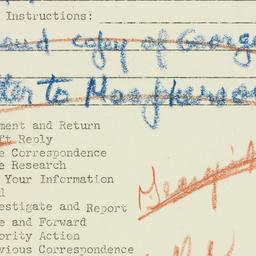 Instructions:
copy of George
to
ment and Return
ft Reply
e Correspondence
e Research
Your Information
d
estigate and Report
e and Forward
ority Action
vious Correspondence